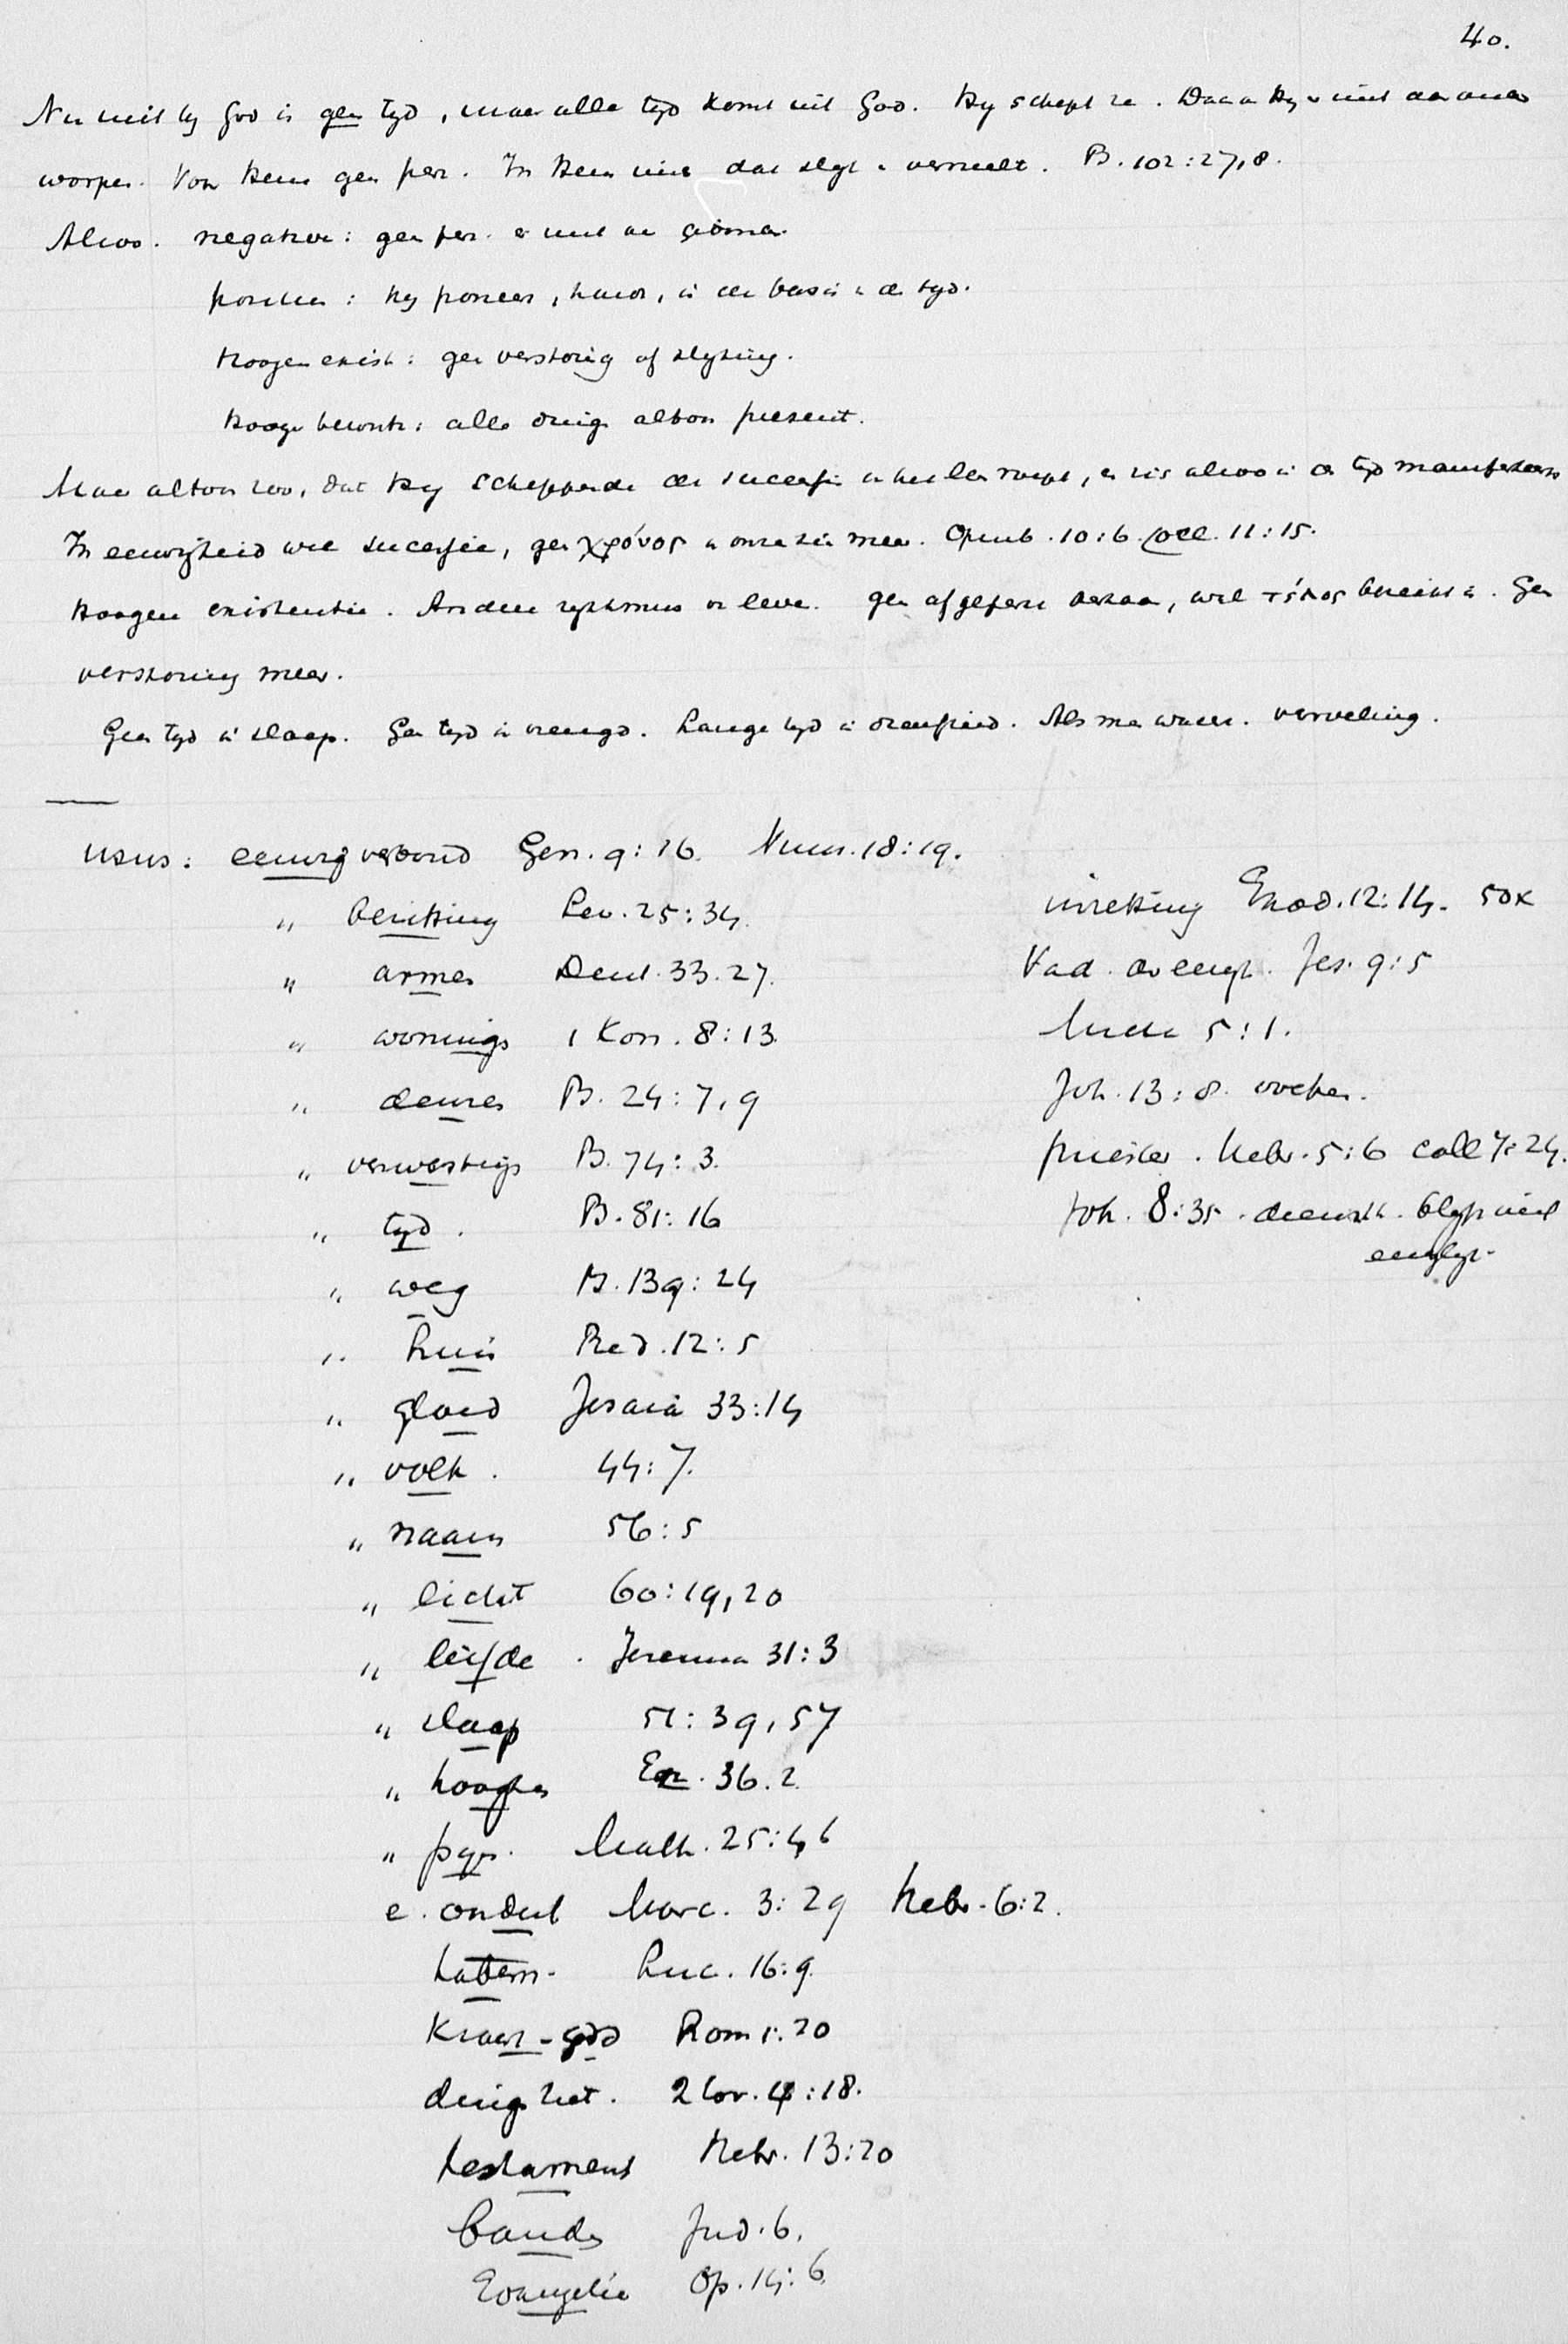 40.
Nu niet by God is geen tyd, maar alle tyd komt uit God. Hy schept ze. Daarom Hy niet aan
worpen. Van Hem geen perz. In Hem niets dat slyt en veroudert. Ps. 102:27,8.
Alzoo. negatieve: geen perz. en niet in
positieve: Hy poneert, houdt, is de basis v. de tyd.
Hoogere exist: geen verstoring of slyting.
Hooge bewustz: alle dingen altoos present.
Maar altoos zoo, dat Hy scheppende de successie in het leven roept, en zich alzoo in de tyd manifesteert
In eeuwigheid wel successie, geen χρόνος in onze zin meer. Openb. 10:6 coll. 11:15.
Hoogere existentie. Andere rythmus v. leven. geen afgeperst bestaan, wel τέλος bereikt is. Geen
verstoring meer.
Geen tyd in slaap. Geen tyd in vreugd. Lange tyd in droefheid. Als men wacht. verveling.
usus: eeuwig verbond Gen. 9:16. Num. 18:19.
" bezitting Lev. 25:34.
inzetting Exod. 12:14. 50x
" armen Deut. 33.27.
Vad. der eeuwigh. Jes. 9:5
" woning 1 Kon. 8:13.
Micha 5:1.
" deuren Ps. 24:7,9
Joh. 13:8. voeten.
" verwoesting Ps. 74:3.
priester. Hebr. 5:6 coll 7:24.
" tyd. Ps. 81:16
Joh. 8:35. dienstk. blyft niet
eeuwigl.
" weg Ps. 139:24
" huis Pred. 12:5
" gloed Jesaia 33:14
" volk. 44:7.
" naam 56:5
" licht 60:19,20
" liefde. Jeremia 31:3
" slaap 51:39,57
" hoogten Ez. 36.2.
" pyn. Matth. 25:46
e. oordeel Marc. 3:29 Hebr. 6:2.
tabern. Luc. 16:9.
Kracht-godd Rom 1:20
dingen niet. 2 Cor. 4:18.
testament Hebr. 13:20
banden Jud. 6.
Evangelie Op. 14:6.